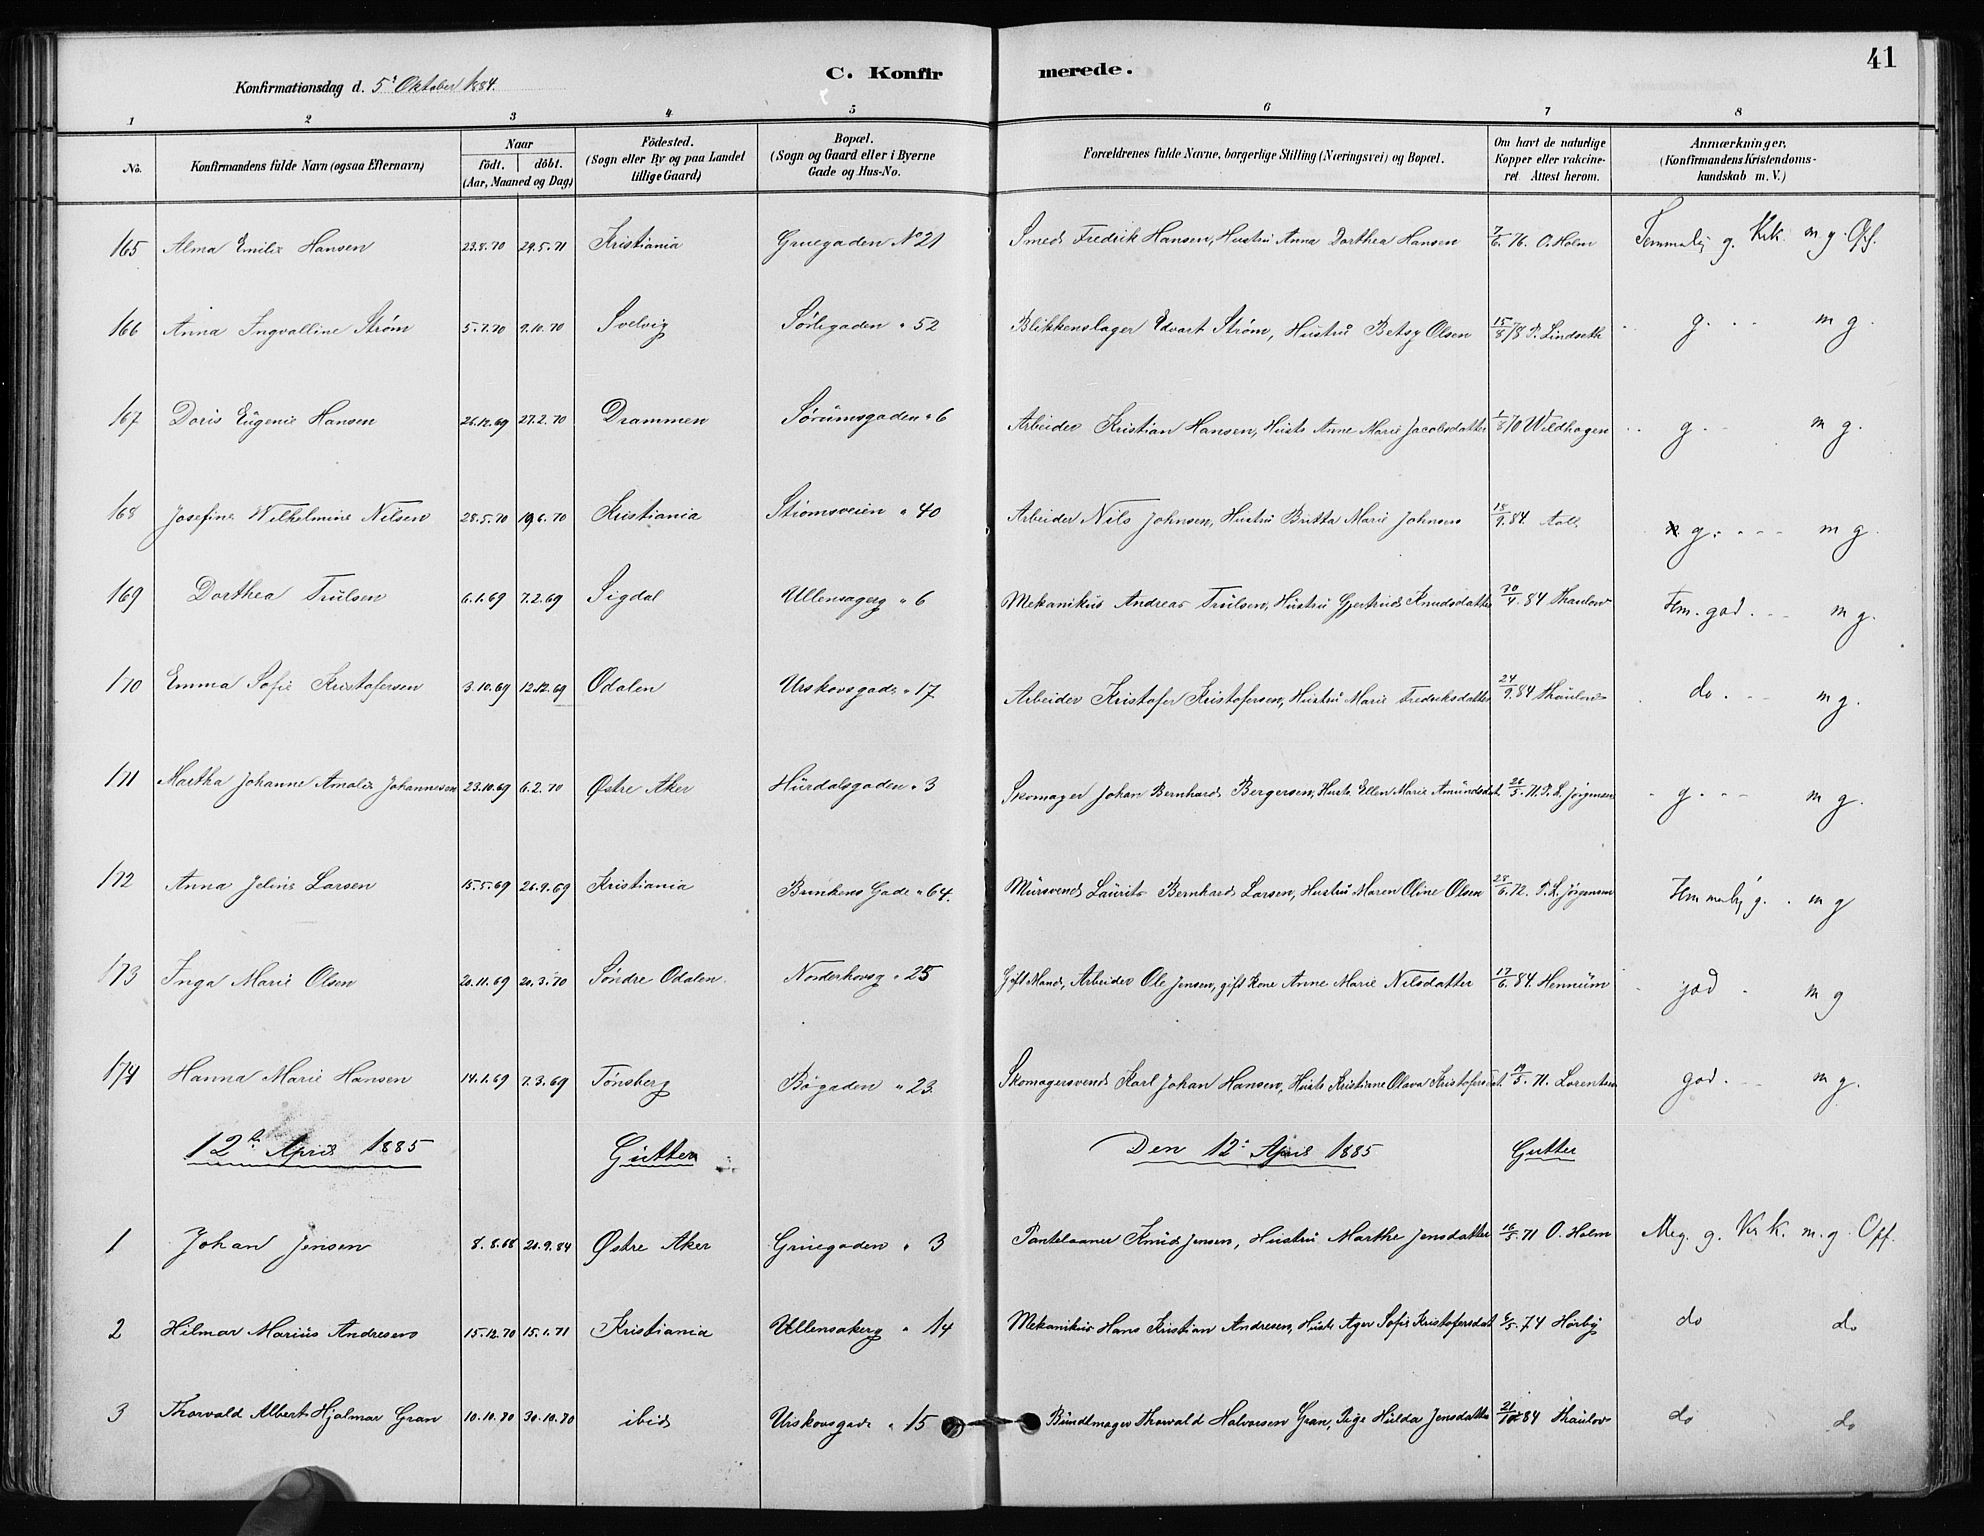 41
C. Konfirmerede.
Konfirmationsdag d. 5t Oktober 1884.
1 2 3 4 5 6 7 8
No. Konfirmandens fulde Navn (ogsaa Efternavn) Naar födt. döbt. (Aar, Maaned og Dag) Födested. (Sogn eller By og paa Landet tillige Gaard) Bopæl. (Sogn og Gaard eller i Byerne Gade og Hus-No. Forældrenes fulde Navne, borgerlige Stilling (Næringsvei) og Bopæl. Om havt de naturlige Kopper eller vakcineret. Attest herom. Anmærkninger. (Konfirmandens Kristendomskundskab m. V.)
165 Alma Emilie Hansen 23.8.70 29.5.71 Kristiania Gruegaden No 21 Smed Fredrik Hansen, Hustru Anna Dorthea Hansen 7/6.76. O. Holm Temmelig g. Krk. m g. Opf.
166 Anna Ingvalline Strøm 5.7.70 9.10.70 Svelvig Sørligaden " 52 Blikkenslager Edvart Strøm, Hustru Betsy Olsen 15/8 78 P. Lindseth g. m g.
167 Doris Eugenie Hansen 26.12.69 27.2.70 Drammen Sørumsgaden " 6 Arbeider Kristian Hansen, Hustr Anne Marie Jacobsdatter 1/8 70 Wildhagen g. m g.
168 Josefine Wilhelmine Nilsen 28.5.70 19.6.70 Kristiania Strømsveien " 40 Arbeider Nils Johnsen, Hustru Britta Marie Johnsen 18/9.84. g. m g.
169 Dorthea Trulsen 6.1.69 7.2.69 Sigdal Ullensagerg " 6 Mekanikus Andreas Trulsen, Hustru Gjertrud Knudsdatter 84 Thaulow Tem. god. m g.
170 Emma Sofie Kristofersen 3.10.69 12.12.69 Odalen Urskovsgade " 17 Arbeider Kristofer Kristofersen, Hustru Marie Fredriksdatter 24/9.84 Thaulow do. m g.
171 Martha Johanne Amalie Johannesen 23.10.69 6.2.70 Østre Aker Hurdalsgaden " 3 Skomager Johan Bernhard Bergersen, Hustr. Ellen Marie Amundsdat. 26/5.71. T. L. Jørgensen g. m g.
172 Anna Jeline Larsen 15.5.69 26.9.69 Kristiania Brinkens Gade " 64. Mursvend Laurits Bernhard Larsen, Hustru Maren Oline Olsen 28/6.72. T. L. Jørgensen Tem melig g. m g
173 Inga Marie Olsen 20.11.69 20.3.70 Søndre Odalen. Norderhovsg " 25 Gift Mand, Arbeider Ole Jensen, gift Kone Anne Marie Nilsdatter 17/6.84. Hennum god m g
174 Hanna Marie Hansen 14.1.69 7.3.69 Tønsberg Bøgaden " 23. Skomagersvend Karl Johan Hansen, Hustr Kristiane Olava Kristofersdat. 19/5.71. Lorentsen god. m g.
12te April 1885 Gutter Den 12te April 1885 Gutter
1 Johan Jensen 8.8.68 20.9.84 Østre Aker Gruegaden " 3 Pantelaaner Knud Jensen, Hustru Marthe Jensdatter 16/5.71 O. Holm Meg. g. Kr k. m. g. Opf.
2 Hilmar Marius Andresen 15.12.70 15.1.71 Kristiania Ullensakerg " 14 Mekanikus Hans Kristian Andresen, Hustr Ager Sofie Kristofersdat 6/5.74 Hørbÿ do do
3 Thorvald Albert Hjalmar Gran 10.10.70 30.10.70 ibid Urskovsgade " 15 Bundtmager Thorvald Halvorsen Gran, Pige Hulda Jensdatter 21/10 84 Thaulow do do